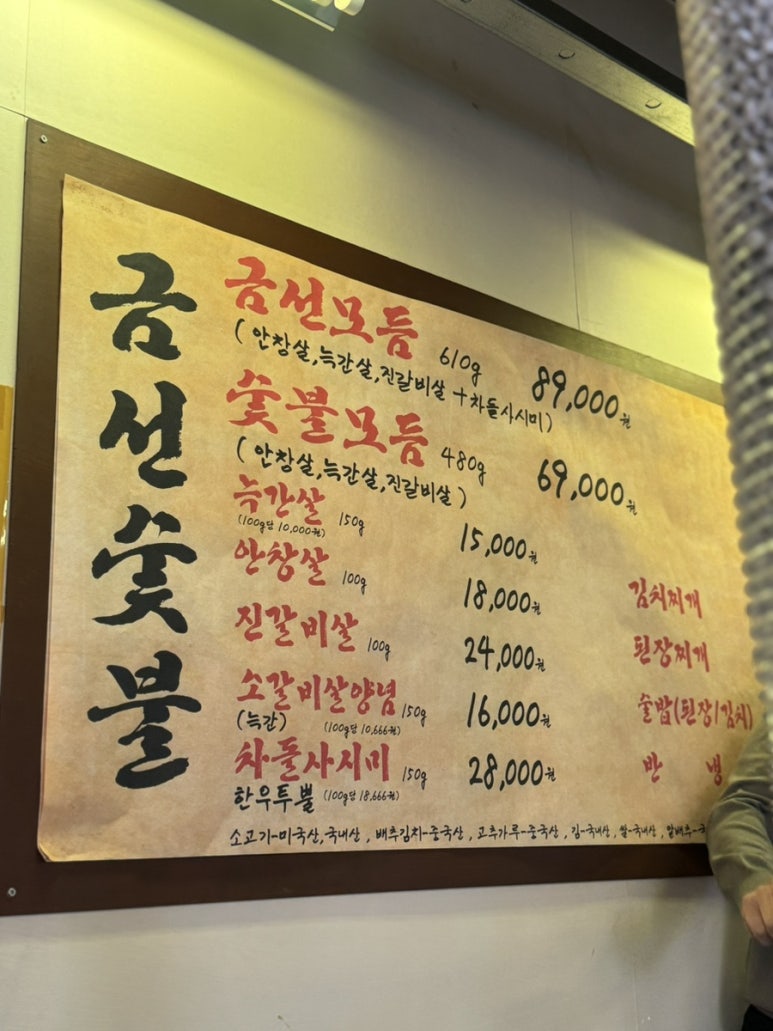 금선숯불
금선모듬 610g 89,000원
(안창살,늑간살,진갈비살+차돌사시미)
숯불모듬 480g 69,000원
(안창살,늑간살,진갈비살)
늑간살 150g 15,000원
(100g당 10,000원)
안창살 100g 18,000원
진갈비살 100g 24,000원
소갈비살양념 150g 16,000원
(늑간) (100g당 10,666원)
차돌사시미 150g 28,000원
한우투뿔 (100g당 18,666원)
김치찌개
된장찌개
술밥(된장/김치)
반 냉
소고기-미국산,국내산, 배추김치-중국산, 고추가루-중국산, 김-국내산, 쌀-국내산, 알배추-